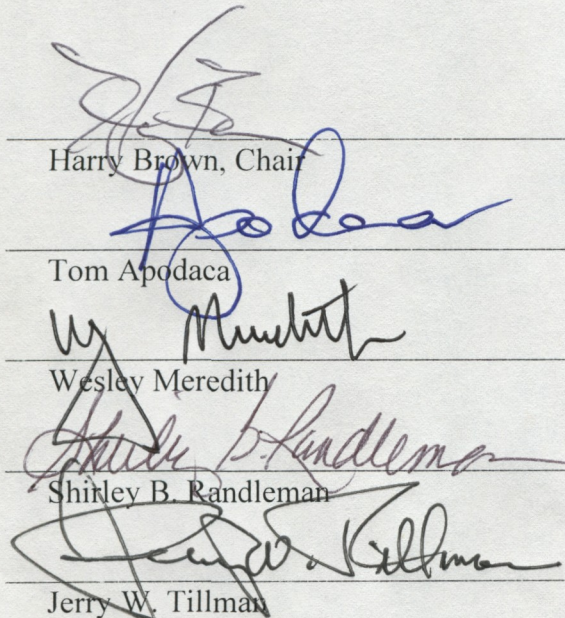 Harry Brown, Chair
Apodaca
Tom Apodaca
W Meredith
Wesley Meredith
Shirley B. Randleman
Shirley B. Randleman
Jerry W. Tillman
Jerry W. Tillman